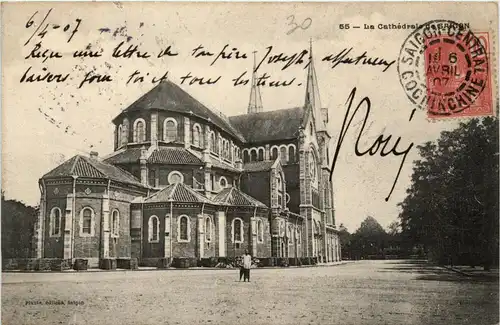 30
55 — La Cathédrale de SAIGON
6/4 - 07
SAIGON CENTRAL
6
AVRIL
07
COCHINCHINE
Reçu une lettre de ton père Joseph affectueux
baisers pour toi et tous les tiens.